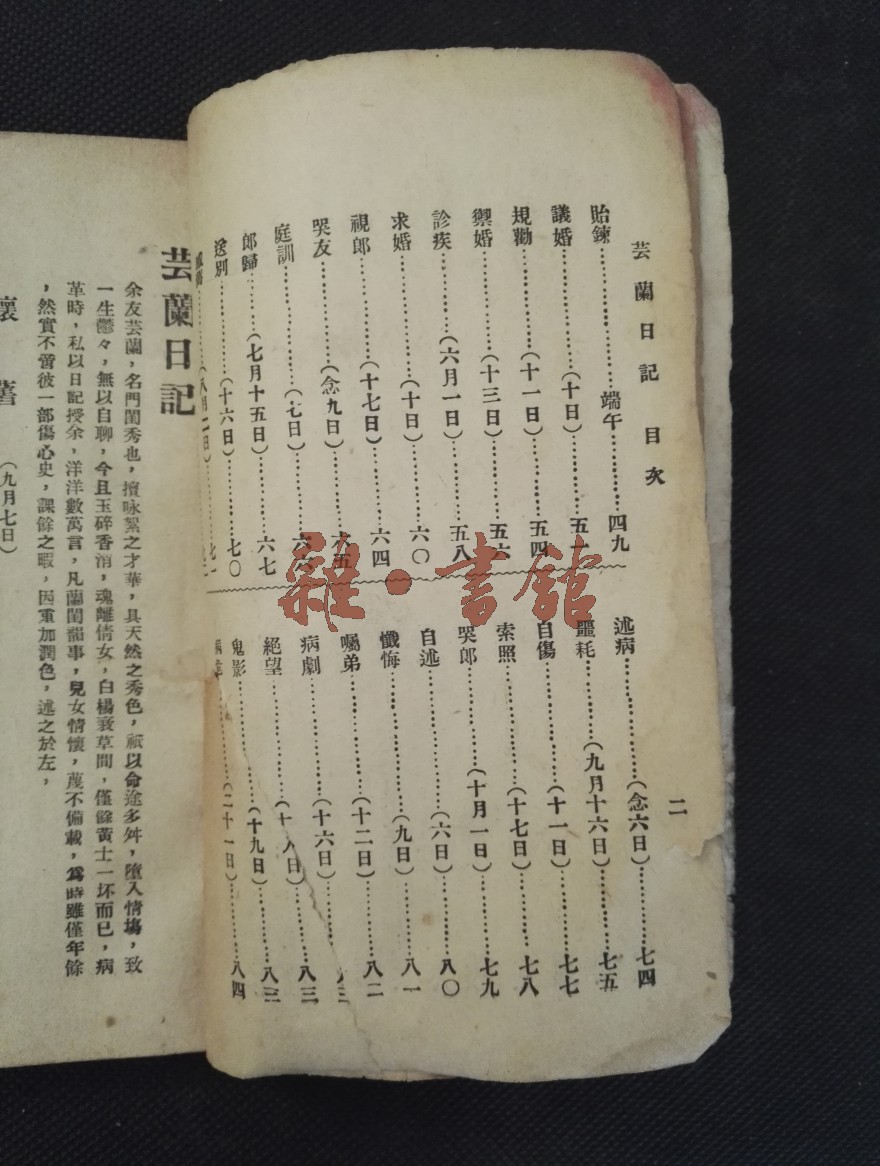 芸蘭日記 目次
二
貽鍊……………端午……………四九
議婚……………(十日)……………五一
規勸……………(十一日)……………五四
禦婚……………(十三日)……………五六
診疾……………(六月一日)……………五八
求婚……………(十日)……………六〇
視郎……………(十七日)……………六四
哭友……………(念九日)……………六五
庭訓……………(七日)……………六六
郎歸……………(七月十五日)……………六七
送別……………(十六日)……………七〇
……………(八月二日)……………七一
述病……………(念六日)……………七四
噩耗……………(九月十六日)……………七五
自傷……………(十一日)……………七七
索照……………(十七日)……………七八
哭郎……………(十月一日)……………七九
自述……………(六日)……………八〇
懺悔……………(九日)……………八一
囑弟……………(十二日)……………八二
病劇……………(十六日)……………八三
絕望……………(十八日)……………八三
鬼影……………(十九日)……………八三
……………(二十一日)……………八四
雜·書館
芸蘭日記
余友芸蘭,名門閨秀也,擅咏絮之才華,具天然之秀色,祇以命途多舛,墮入情塲,致
一生鬱々,無以自聊,今且玉碎香消,魂離倩女,白楊衰草間,僅餘黃土一坏而已,病
革時,私以日記授余,洋洋數萬言,凡蘭閨韻事,兒女情懷,蔑不備載,爲時雖僅年餘
,然實不啻彼一部傷心史,課餘之暇,因重加潤色,述之於左,
懷舊 (九月七日)